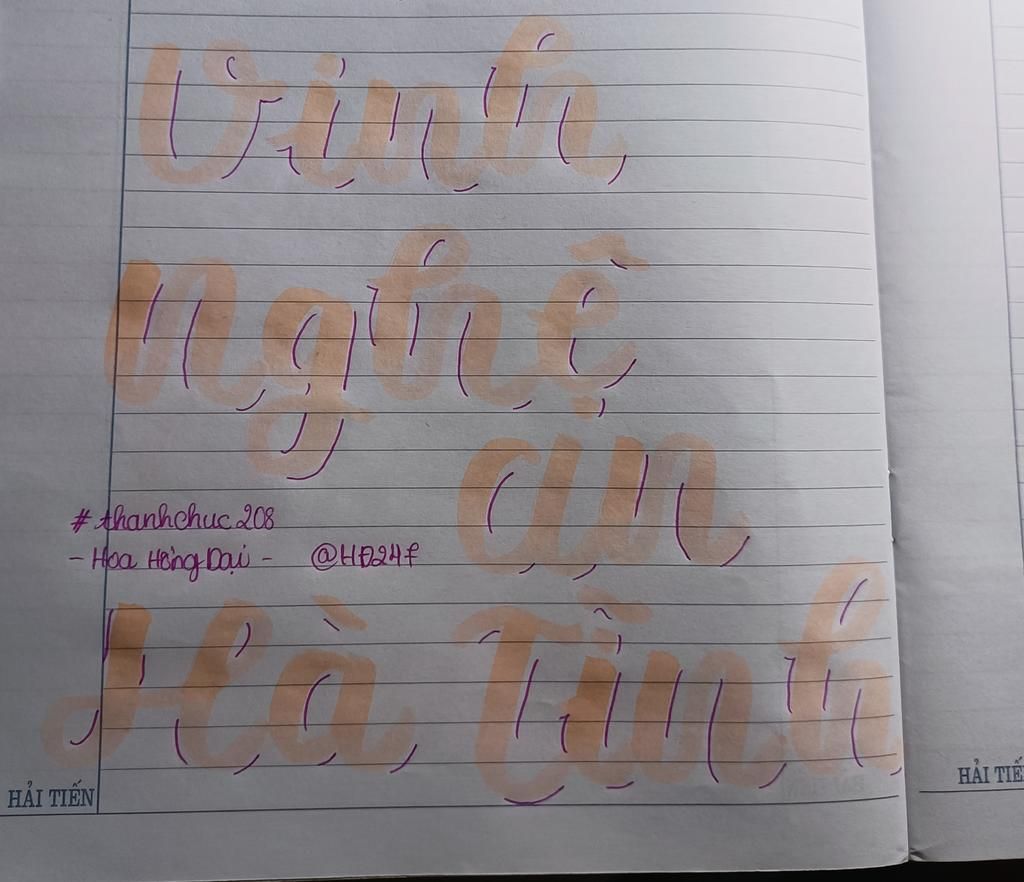 Vinh
Nghệ
an
# thanhchuc 208
- Hoa Hồng Dại - @HĐ247
Hà Tình
HẢI TIẾN
HẢI TIẾ